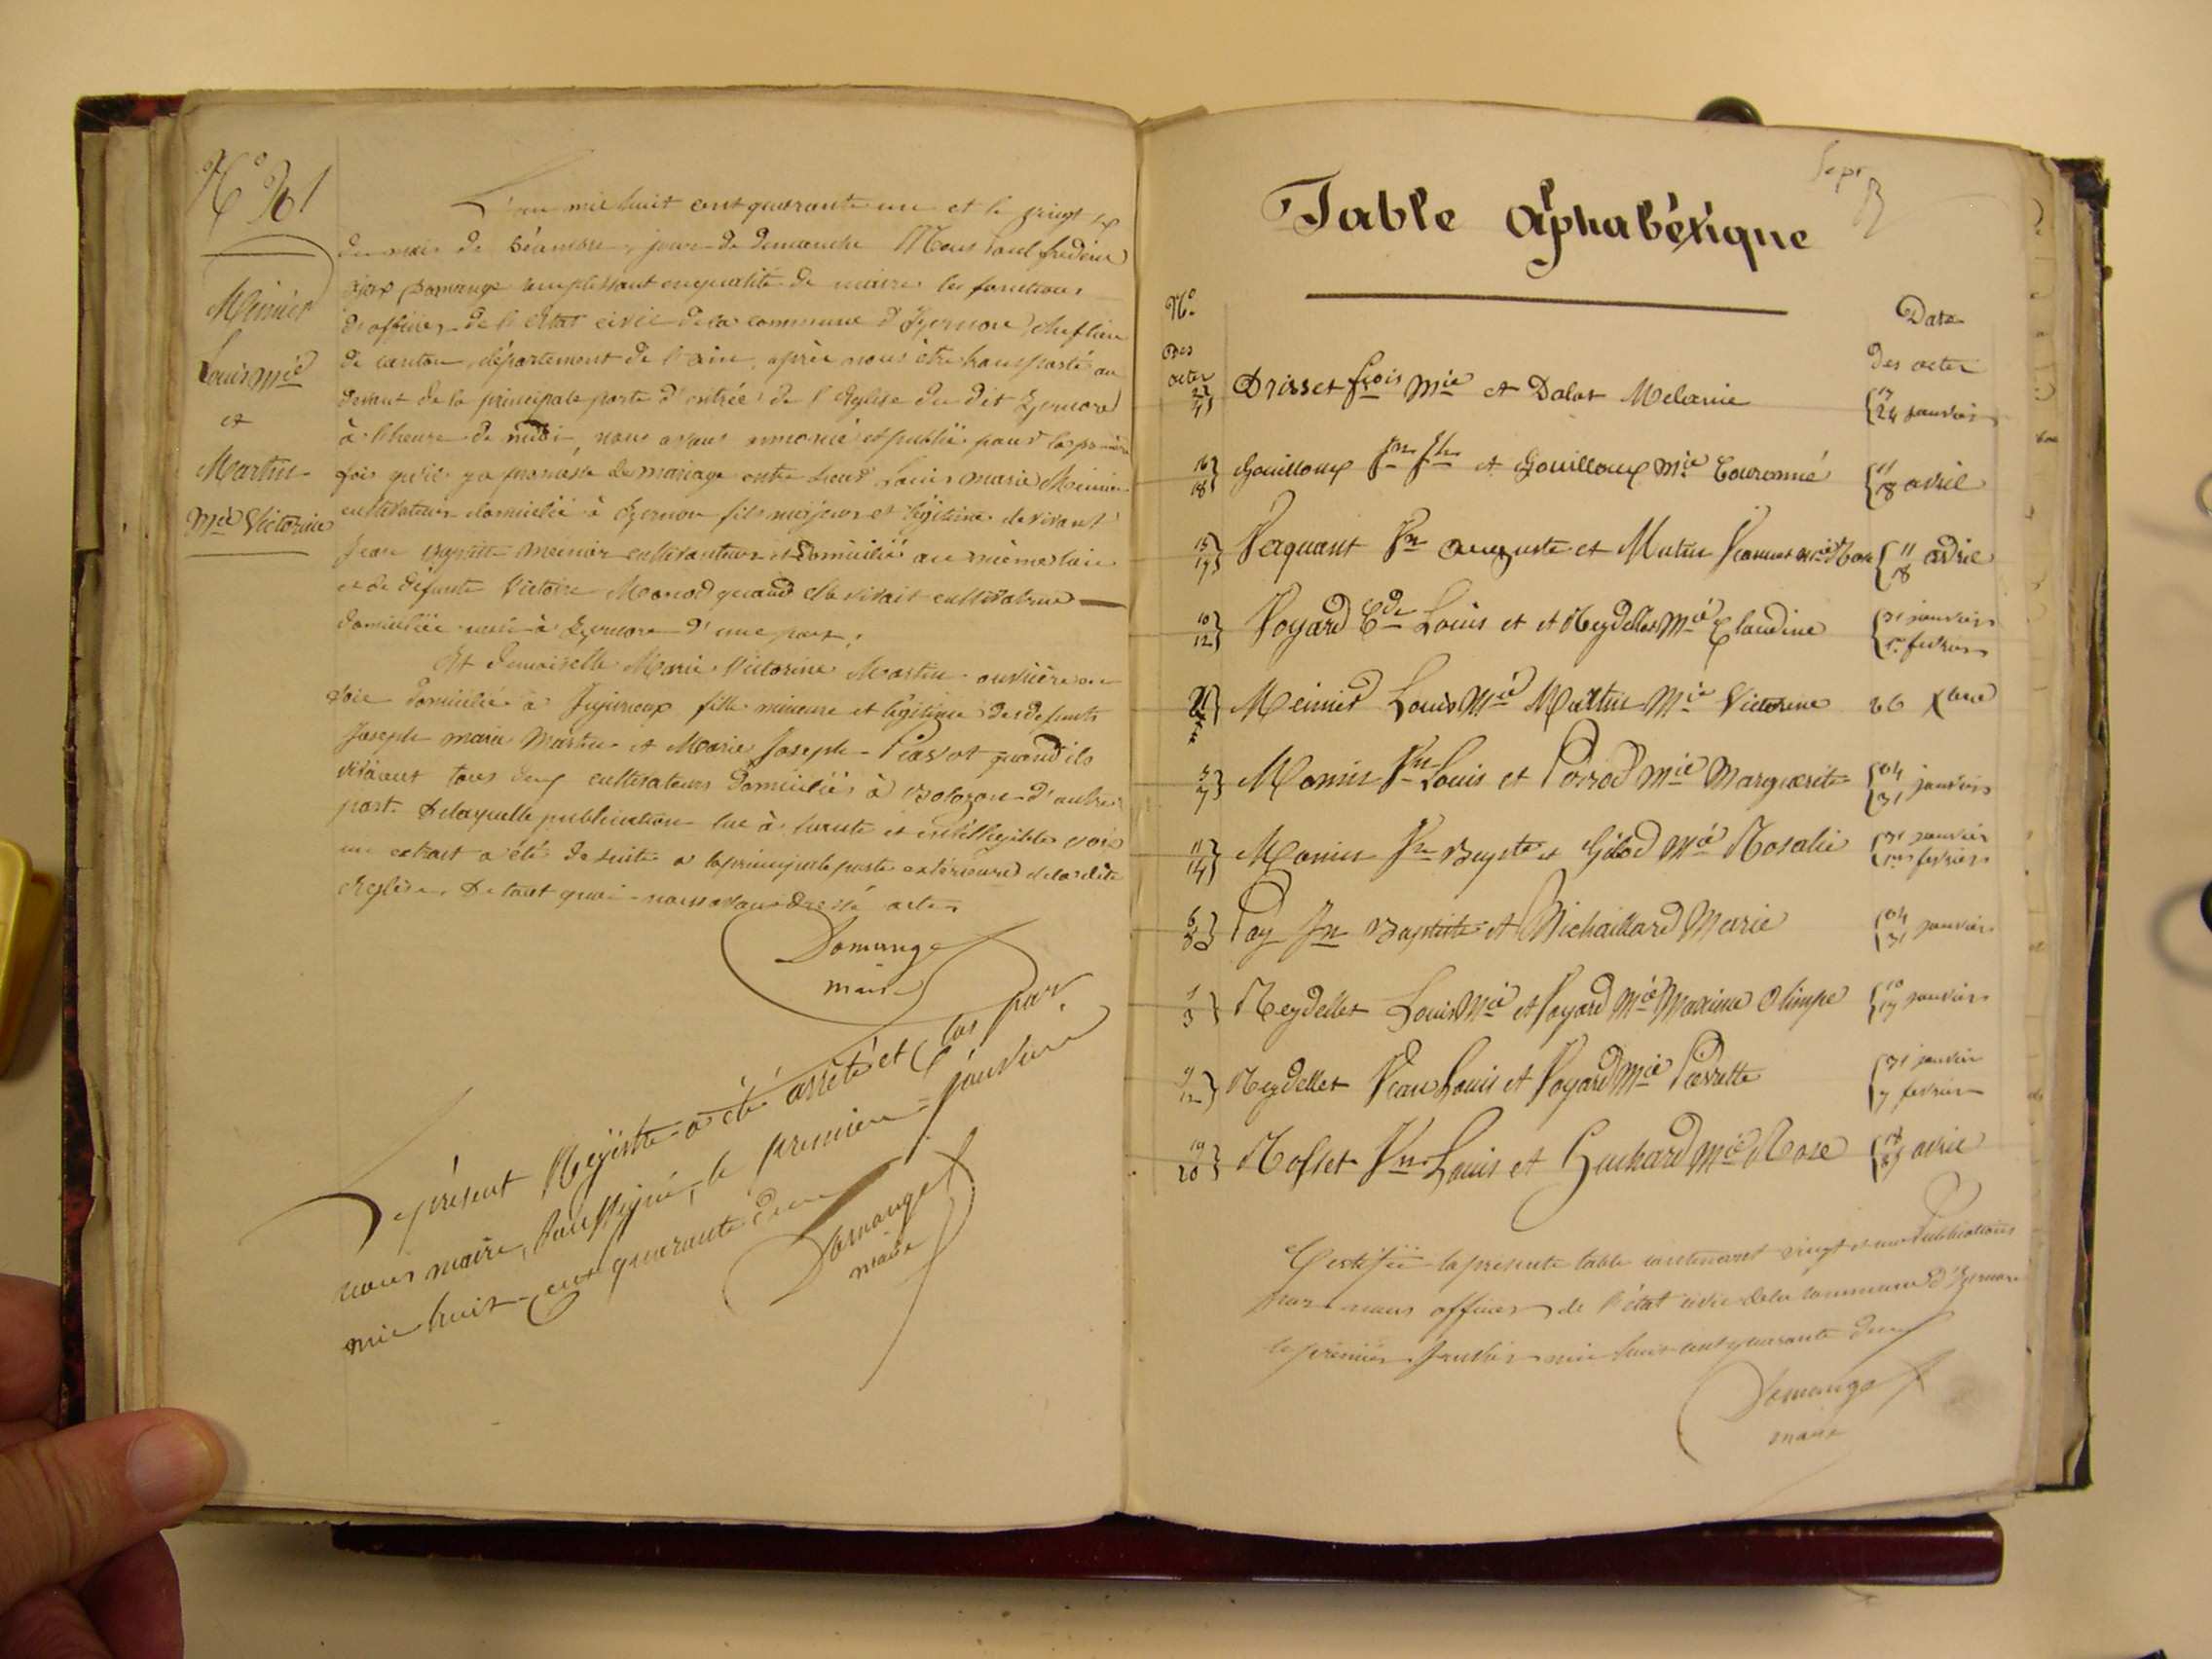 N° 21
Meinier
Louis Mie
et
Martin
Mie Victorine
L'an mil huit cent quarante un et le vingt six
du mois de Décembre, jour de Dimanche Nous Paul frédéric
Domange remplissant en qualité de maire les fonctions
d'officier de l'état civil de la commune d'Izernore, chef lieu
de canton, département de l'ain, après nous être transporté au
devant de la principale porte d'entrée de l'Eglise du dit Izernore
à l'heure de midi, nous avons annoncé et publié pour la première
fois qu'il y a promesse de mariage entre sieur Louis marie Meinier
cultivateur domicilié à Izernore fils majeur et légitime de vivant
Jean Baptiste Meinier cultivateur et Domicilié au même lieu
et de défunte Victoire Monod quand elle vivait cultivatrice
domiciliée aussi à Izernore d'une part,
Et Demoiselle Marie Victorine Martin ouvrière en
soie domicilié à Jujurieux fille mineure et légitime des défunts
Joseph marie Martin et Marie Joseph Pervot quand ils
vivaient tous deux cultivateurs Domiciliés à Bolozon d'autre
part. De laquelle publication lue à haute et intelligible voix
un extrait a été de suite a la principale porte extérieure de la dite
Eglise. De tout quoi nous avons dressé acte
Domange
maire
Le présent Registre a été arrêté et clos par
nous maire, soussigné, le premier janvier
mil huit cent quarante deux
Domange
maire
Sept
Table Aphabétique
No
Des
actes
Date
Des actes
Drisset fçois Mie et Dalat Melanie { 17 24 janvier
16 18 } Gouilloux Jn Jh et Gouilloux Mie Couronné { 11 18 avril
15 17 } Jaquant Jn auguste et Mutin Jeanne Mie Rose { 11 18 avril
10 12 } Joyard Cde Louis et et Reydellet Mie Claudine { 31 janvier fevrier
21 } Meinier Louis Mie Martin Mie Victorine 26 Xbre
5 7 } Monier Jn Louis et Poirod Mie Marguerite { 24 31 janvier
11 14 } Monier Jn Bapte et Gidod Mie Rosalie { 31 janvier fevrier
6 8 } Pay Jn Baptiste et Michaillard Marie { 24 31 janvier
1 3 } Reydellet Louis Mie et Joyard Mie Maxime Olimpe { 10 17 janvier
9 12 } Reydellet Jean Louis et Joyard Mie Pierrette { 31 janvier 7 fevrier
19 20 } Rosset Jn Louis et Guichard Mie Rose { 18 avril
Certifié la présente table contenant vingt et une Publications
par nous officier de l'état civil de la commune d'Izernore
le premier Janvier mil huit cent quarante deux
Domange
maire